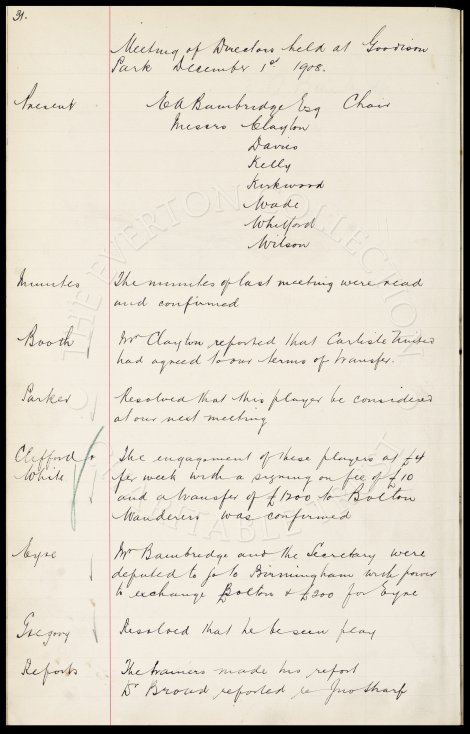 31.
Meeting of Directors held at Goodison
Park December 1st 1908.
Present E A Bambridge Esq Chair
Messrs Clayton
Davies
Kelly
Kirkwood
Wade
Whitford
Wilson
Minutes The minutes of last meeting were read
and confirmed
Booth Mr Clayton reported that Carlisle United
had agreed to our terms of transfer.
Parker Resolved that this player be considered
at our next meeting
Clifford + The engagement of these players at £4
White per week with a signing on fee of £10
and a transfer of £1200 to Bolton
Wanderers was confirmed
Eyre Mr Bambridge and the Secretary were
deputed to go to Birmingham with power
to exchange Bolton & £200 for Eyre
Gregory Resolved that he be seen play
Reports The trainers made his report
Dr reported re Jno Sharp
THE EVERTON COLLECTION CHARITABLE TRUST